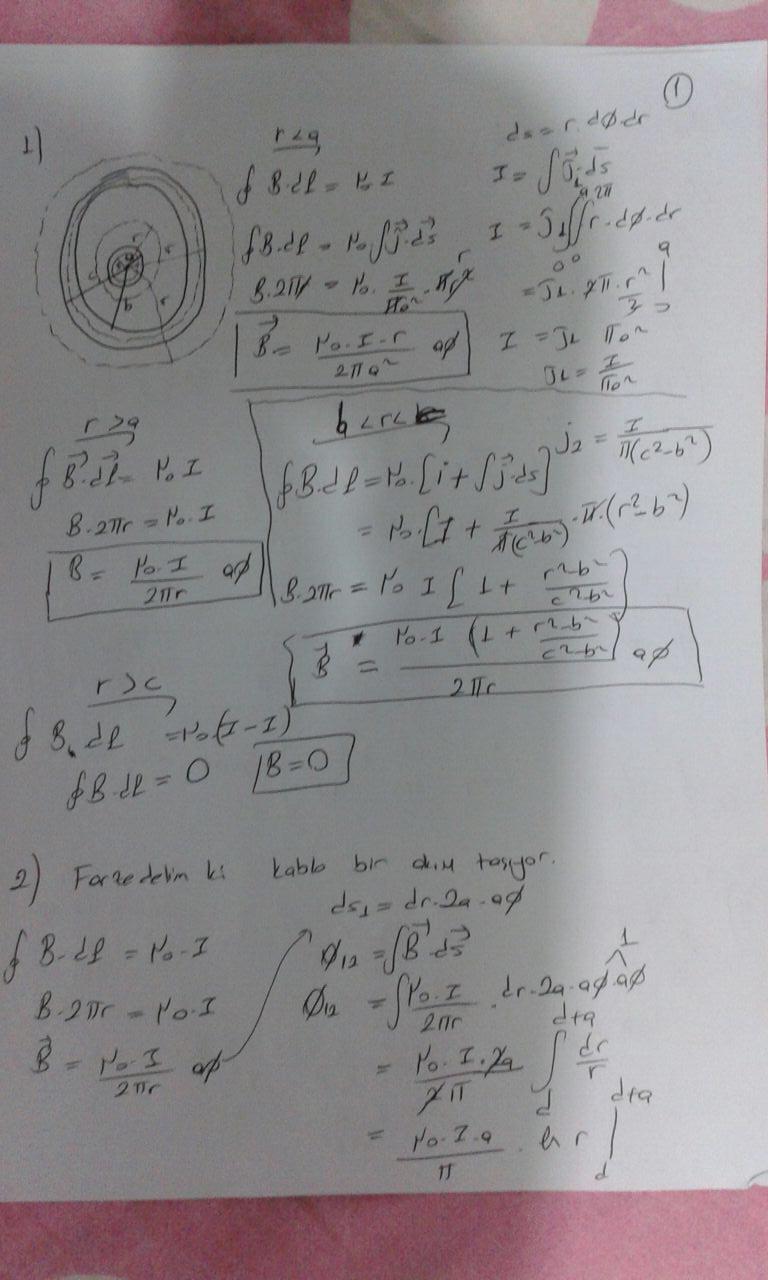 ①
1)
r<a
∮ B.dl = μ₀ I
∮B.dl = μ₀ ∫ j⃗.ds⃗
B.2πr = μ₀ . I/πa² . πr²
B⃗ = μ₀.I.r/2πa² aϕ
ds = r.dϕ.dr
I = ∫ J⃗₁.ds⃗
I = J₁ ∫₀ᵃ∫₀²π r.dϕ.dr
= J₁.2π. r²/2 |₀ᵃ
I = J₁ πa²
J₁ = I/πa²
r>a
∮ B⃗.dl⃗ = μ₀ I
B.2πr = μ₀.I
B = μ₀.I/2πr aϕ
b<r<
j₂ = I/π(c²-b²)
∮B.dl = μ₀.[i + ∫j⃗.ds]
= μ₀.[I + I/π(c²-b²) .π.(r²-b²)
B.2πr = μ₀ I [1 + r²-b²/c²-b²]
B⃗ = μ₀.I (1 + r²-b²/c²-b²)/2πr aϕ
r>c
∮ B.dl = μ₀(I-I)
∮B.dl = 0 B=0
2) Farzedelim ki kablo bir akım taşıyor.
∮ B.dl = μ₀.I
B.2πr = μ₀.I
B⃗ = μ₀.I/2πr aϕ
ds₁ = dr.2a.aϕ
ϕ₁₂ = ∫B⃗.ds⃗
1
ϕ₁₂ = ∫ μ₀.I/2πr . dr.2a.aϕ.aϕ
= μ₀.I.2a/2π ∫_d^{d+a} dr/r
= μ₀.I.a/π . ln r |_d^{d+a}